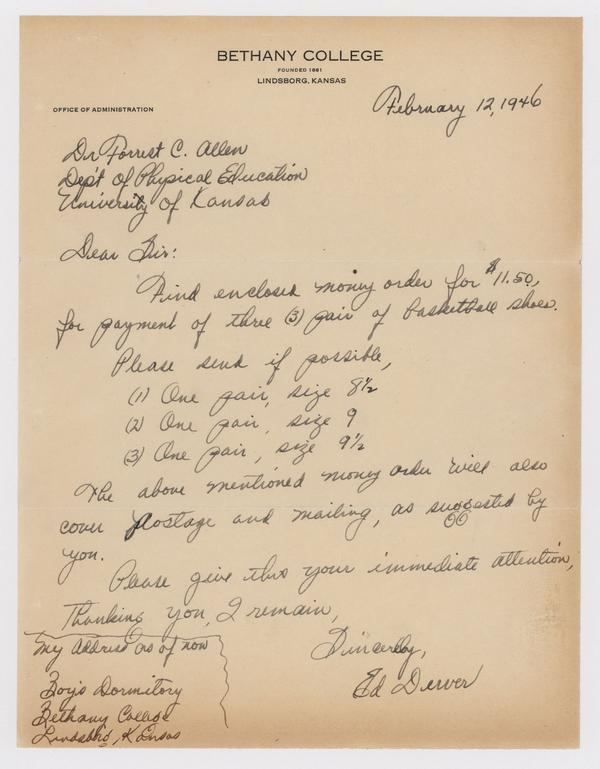 BETHANY COLLEGE
FOUNDED 1881
LINDSBORG, KANSAS
OFFICE OF ADMINISTRATION
February 12, 1946
Dr Forrest C. Allen
Dep't of Physical Education
University of Kansas
Dear Sir:
Find enclosed money order for $11.50,
for payment of three (3) pair of basketball shoes.
Please send if possible,
(1) One pair, size 8½
(2) One pair, size 9
(3) One pair, size 9½
The above mentioned money order will also
cover postage and mailing, as suggested by
you.
Please give this your immediate attention,
Thanking you, I remain,
Sincerely,
Ed Dewer
My Address as of now
Boy's Dormitory
Bethany College
Lindsborg, Kansas